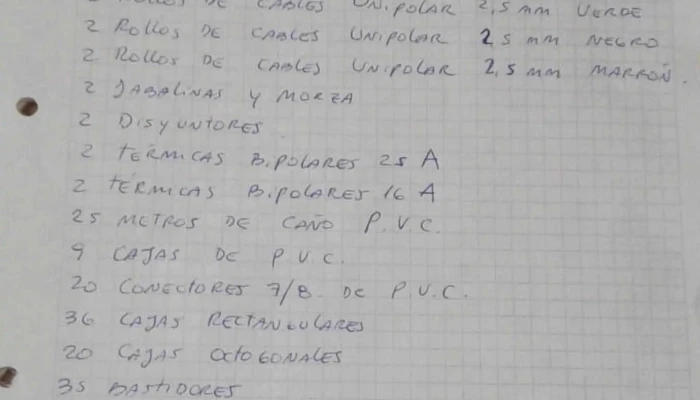 2 ROLLOS DE CABLES UNIPOLAR 2,5 mm VERDE
2 ROLLOS DE CABLES UNIPOLAR 2,5 mm NEGRO
2 ROLLOS DE CABLES UNIPOLAR 2,5 mm MARRÓN.
2 JABALINAS Y MORZA
2 DISYUNTORES
2 TÉRMICAS BIPOLARES 25 A
2 TÉRMICAS BIPOLARES 16 A
25 METROS DE CAÑO P.V.C.
9 CAJAS DE P.V.C.
20 CONECTORES 7/8 DE P.V.C.
36 CAJAS RECTANGULARES
20 CAJAS OCTOGONALES
35 BASTIDORES